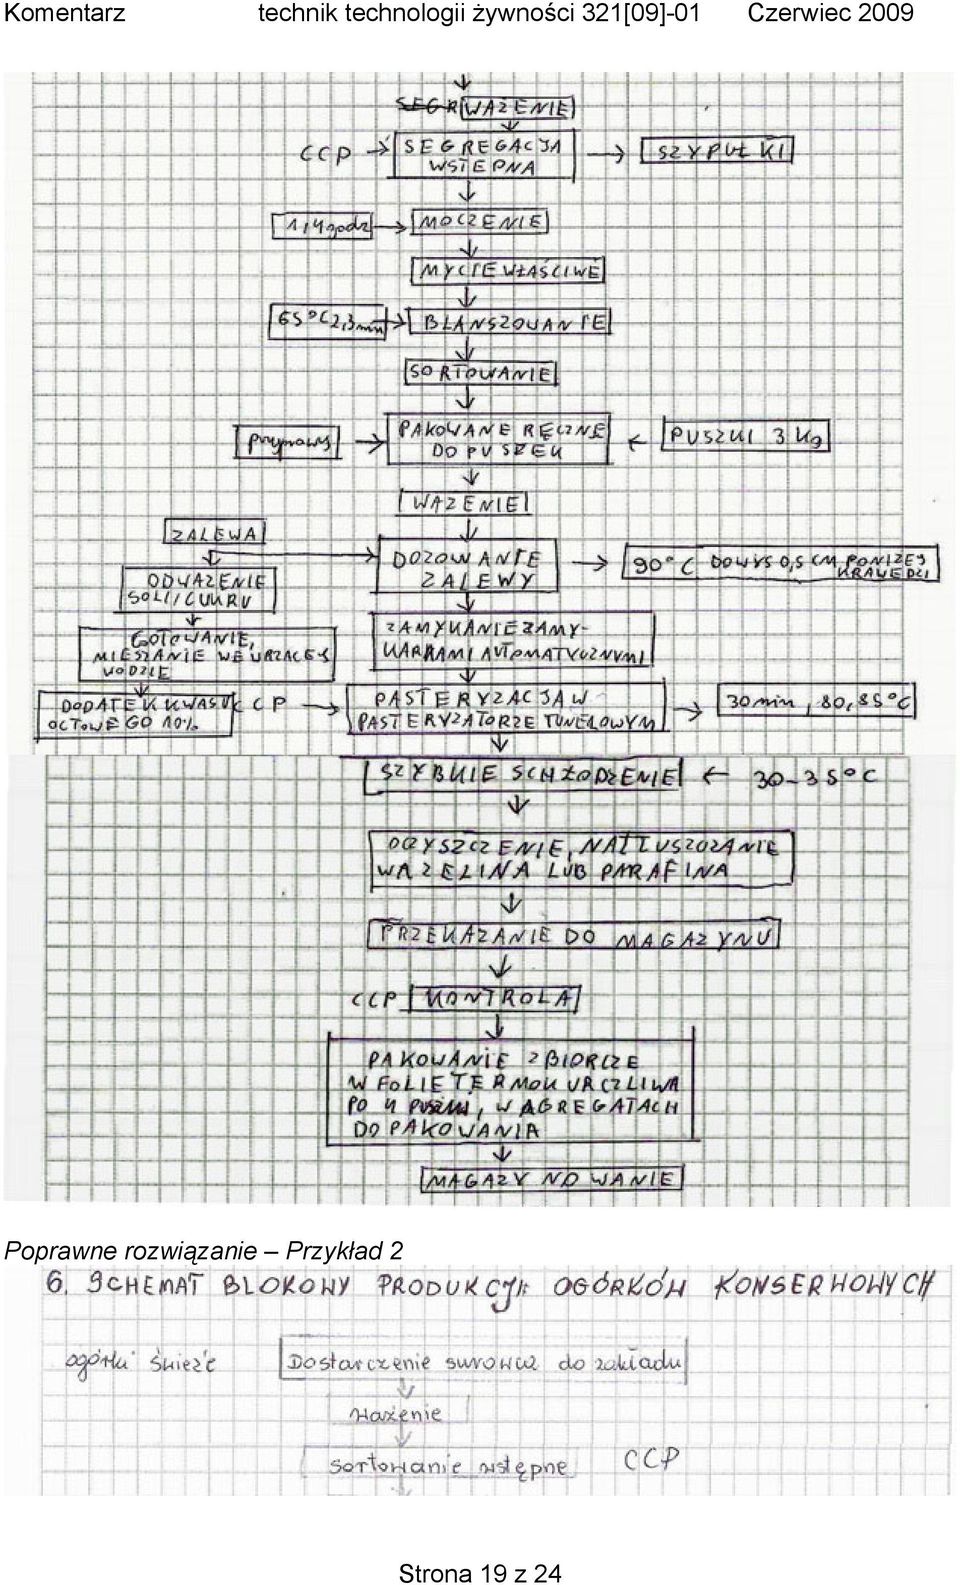 Komentarz technik technologii żywności 321[09]-01 Czerwiec 2009
SEGR WAŻENIE
CCP SEGREGACJA SZYPUŁKI
WSTĘPNA
1,4 godz MOCZENIE
MYCIE WŁAŚCIWE
65°C 2,3 min BLANSZOWANIE
SORTOWANIE
przyprawy PAKOWANE RĘCZNE PUSZKI 3 kg
DO PUSZEK
WAŻENIE
ZALEWA
DOZOWANIE 90°C DO WYS 0,5 CM PONIŻEJ
ZALEWY KRAWĘDZI
ODWAŻENIE
SOLI/CUKRU
GOTOWANIE,
MIESZANIE WE WRZĄCEJ
WODZIE
ZAMYKANIE ZAMY-
KARKAMI AUTOMATYCZNYMI
DODATEK KWASU
OCTOWEGO 10%
CCP PASTERYZACJA W 30 min, 80,85°C
PASTERYZATORZE TUNELOWYM
SZYBKIE SCHŁODZENIE 30-35°C
OCZYSZCZENIE, NATŁUSZCZANIE
WAZELINA LUB PARAFINA
PRZEKAZANIE DO MAGAZYNU
CCP KONTROLA
PAKOWANIE ZBIORCZE
W FOLIE TERMOKURCZLIWA
PO 4 PUSZKI, W AGREGATACH
DO PAKOWANIA
MAGAZYNOWANIE
Poprawne rozwiązanie – Przykład 2
6. SCHEMAT BLOKOWY PRODUKCJI OGÓRKÓW KONSERWOWYCH
ogórki świeże Dostarczenie surowca do zakładu
ważenie
sortowanie wstępne CCP
Strona 19 z 24